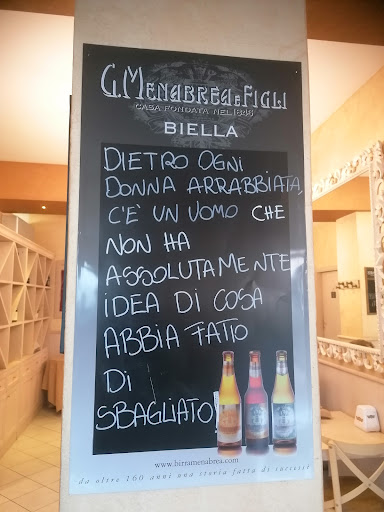 G. MENABREA E FIGLI
CASA FONDATA NEL 1846
BIELLA
DIETRO OGNI
DONNA ARRABBIATA,
C'È UN UOMO CHE
NON HA
ASSOLUTAMENTE
IDEA DI COSA
ABBIA FATTO
DI
SBAGLIATO!
www.birramenabrea.com
da oltre 160 anni una storia fatta di successi